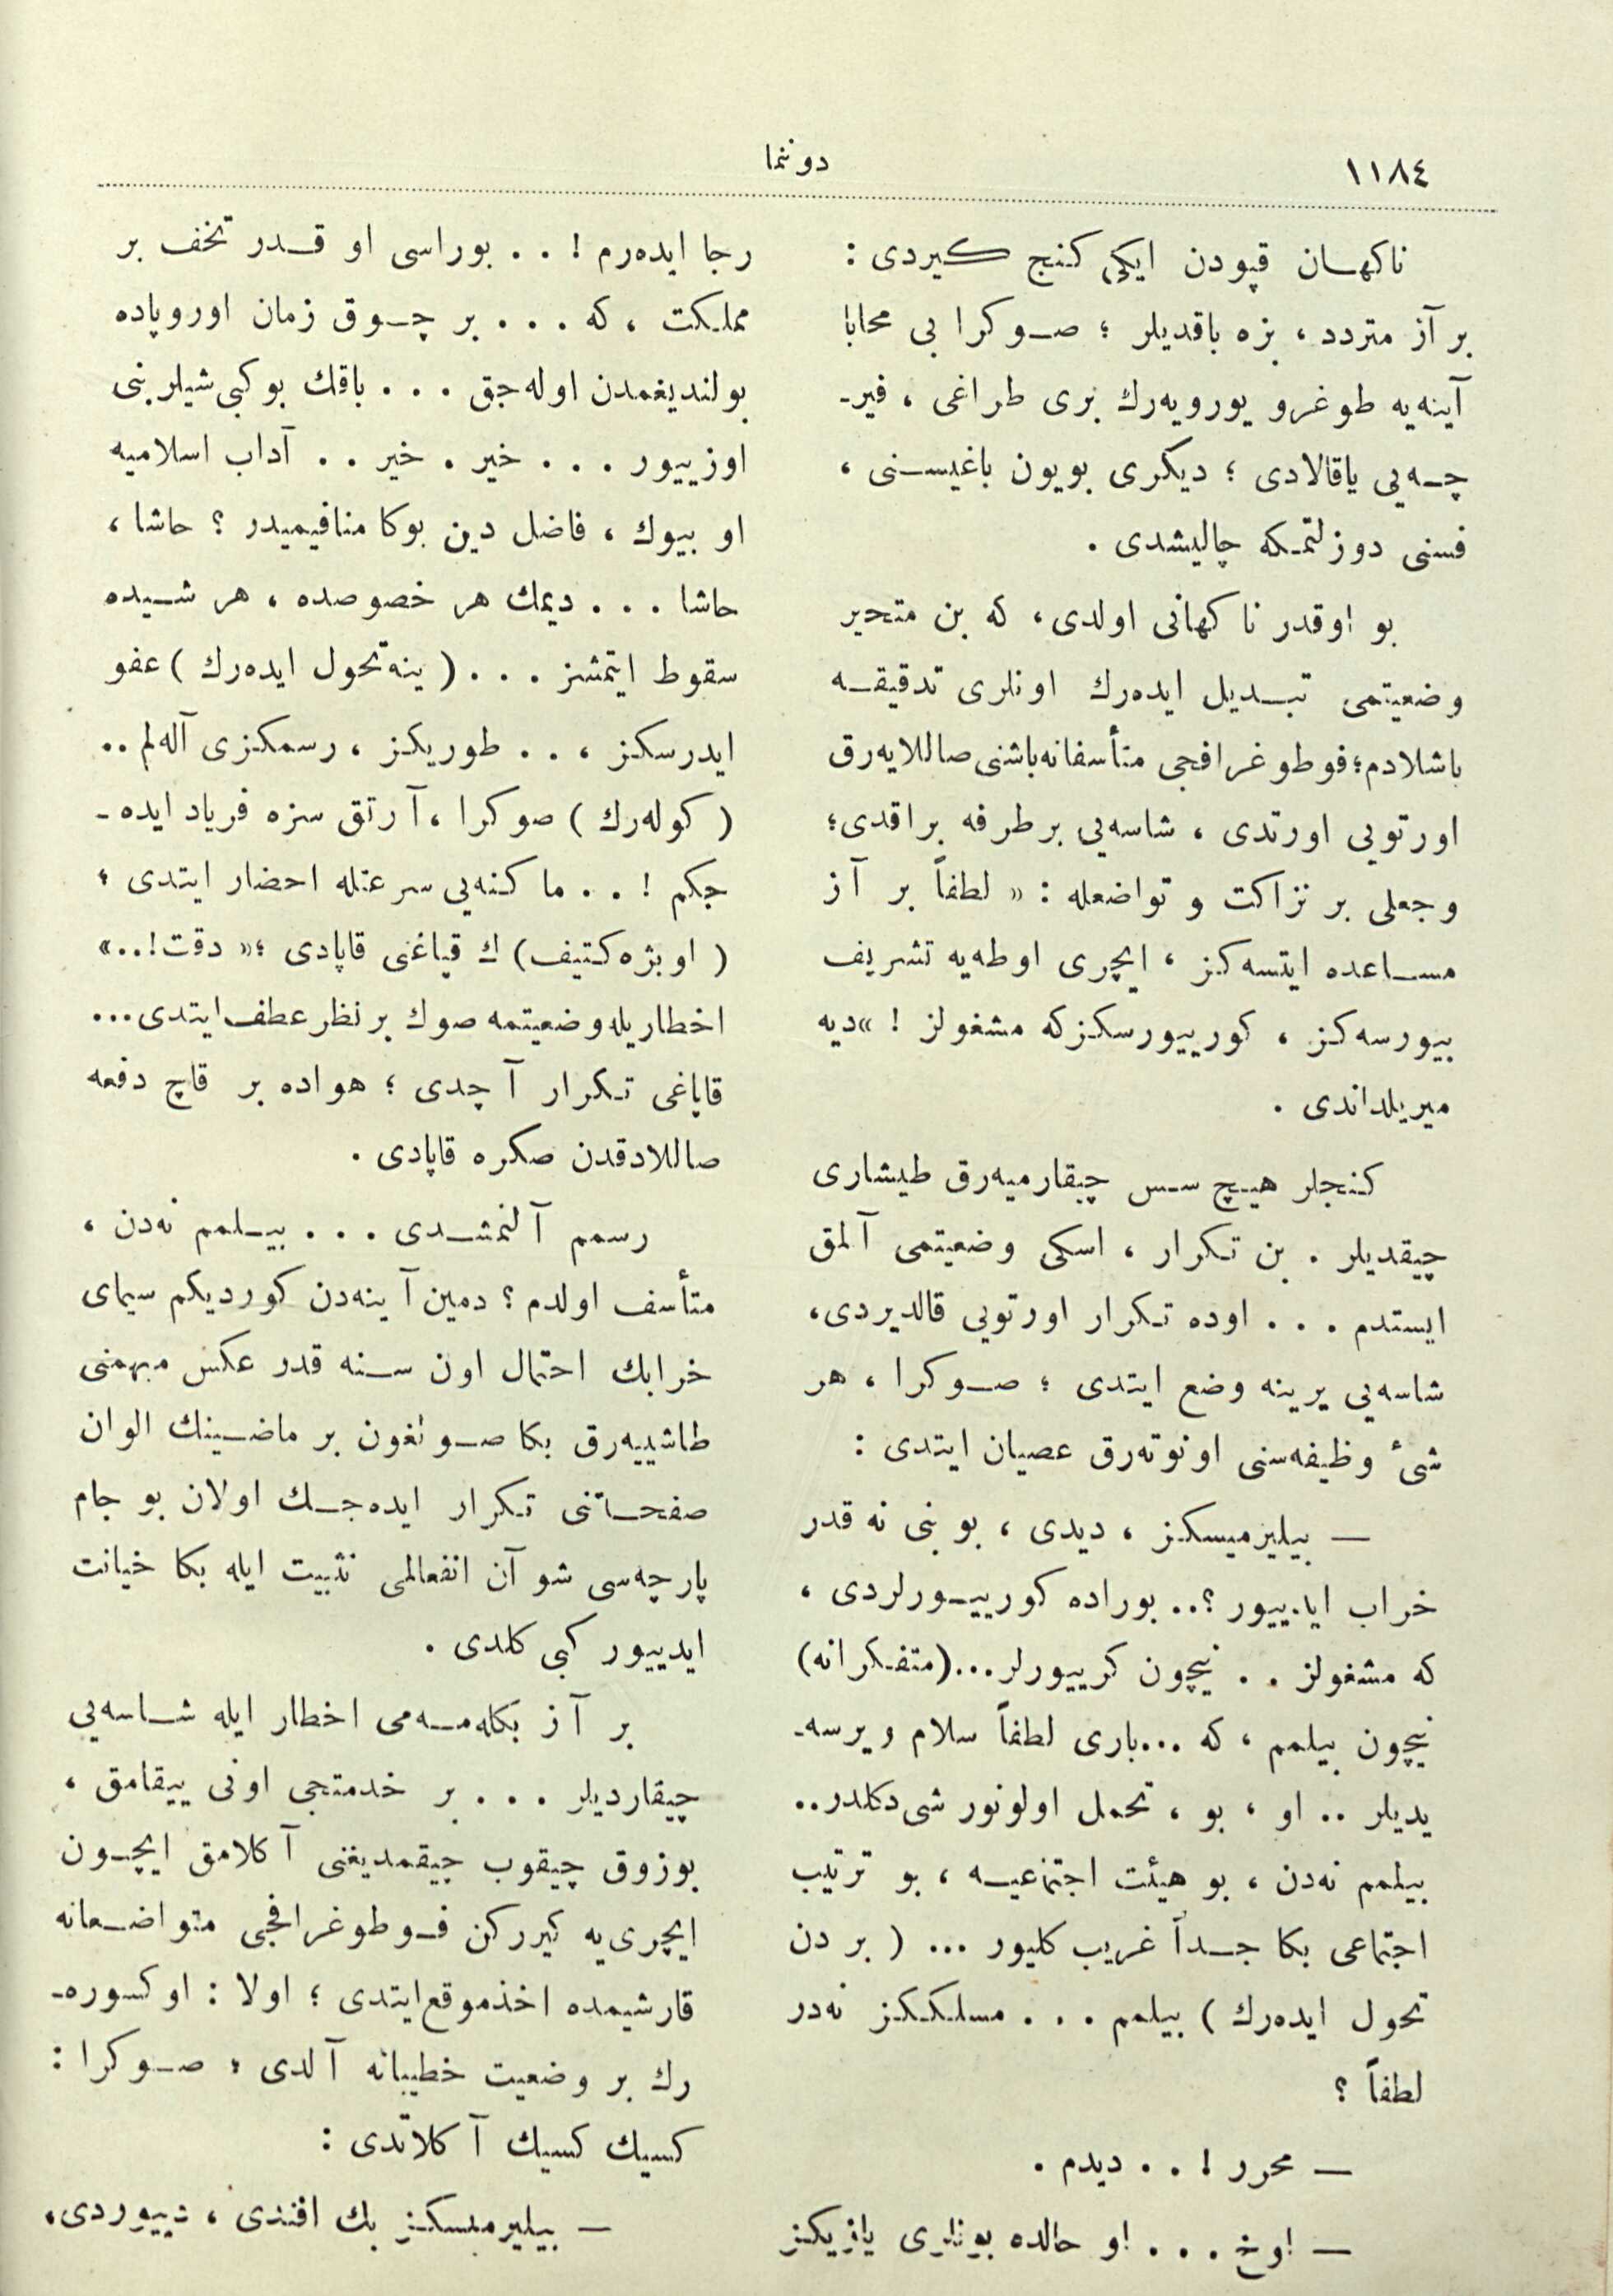 ١١٨٤
دوننما
ناکهان قپودن ایکی کنج کیردی :
بر آز متردد ، بزه باقدیلر ؛ صوکرا بی محابا
آینه‌یه طوغرو یورویه‌رك بری طراغی ، فیر-
چه‌یی یاقالادی ؛ دیکری بویون باغیسنی ،
فسنی دوزلتمکه چالیشدی .
بو اوقدر ناکهانی اولدی ، که بن متحیر
وضعیتمی تبدیل ایده‌رك اونلری تدقیقه
باشلادم ؛ فوطوغرافجی متأسفانه باشنی صاللایه‌رق
اورتویی اورتدی ، شاسه‌یی بر طرفه براقدی ؛
وجعلی بر نزاکت و تواضعله : « لطفاً بر آز
مساعده ایتسه‌کز ، ایچری اوطه‌یه تشریف
بیورسه‌کز ، کورییورسکزکه مشغولز ! » دیه
میریلداندی .
کنجلر هیچ سس چیقارمیه‌رق طیشاری
چیقدیلر . بن تکرار ، اسکی وضعیتمی آلمق
ایستدم . . . اوده تکرار اورتویی قالدیردی ،
شاسه‌یی یرینه وضع ایتدی ؛ صوکرا ، هر
شیٔ وظیفه‌سنی اونوته‌رق عصیان ایتدی :
— بیلیرمیسکز ، دیدی ، بو بنی نه قدر
خراب ایدییور ؟.. بوراده کورییورلردی ،
که مشغولز . . نیچون کرییورلر...(متفکرانه)
نیچون بیلمم ، که ...باری لطفاً سلام ویرسه-
یدیلر .. او ، بو ، تحمل اولونور شی دکلدر..
بیلمم نه‌دن ، بو هیئت اجتماعیه ، بو ترتیب
اجتماعی بکا جداً غریب کلیور ... ( بر دن
تحول ایده‌رك ) بیلمم . . . مسلککز نه‌در
لطفاً ؟
— محرر ! . . دیدم .
— اوخ . . . او حالده بونلری یازیکز
رجا ایده‌رم ! . . بوراسی او قدر تحف بر
مملکت ، که . . . بر چوق زمان اوروپاده
بولندیغمدن اوله‌جق . . . باقك بو کبی شیلر بنی
اوزییور . . . خیر . خیر . . آداب اسلامیه
او بیوك ، فاضل دین بوکا منافیمیدر ؟ حاشا ،
حاشا . . . دیمك هر خصوصده ، هر شیده
سقوط ایتمشز . . . ( ینه تحول ایده‌رك ) عفو
ایدرسکز ، . . طوریکز ، رسمکزی آله‌لم ..
( کوله‌رك ) صوکرا ، آرتق سزه فریاد ایده -
جکم ! . . ماکنه‌یی سرعتله احضار ایتدی ؛
( اوبژه‌کتیف ) ك قپاغنی قاپادی ؛« دقت !..»
اخطاریله وضعیتمه صوك بر نظر عطف ایتدی...
قاپاغی تکرار آچدی ؛ هواده بر قاچ دفعه
صاللادقدن صکره قاپادی .
رسمم آلنمشدی . . . بیلمم نه‌دن ،
متأسف اولدم ؟ دمین آینه‌دن کوردیکم سیمای
خرابك احتمال اون سنه قدر عکس مبهمنی
طاشییه‌رق بکا صولغون بر ماضینك الوان
صفحاتنی تکرار ایده‌جك اولان بو جام
پارچه‌سی شو آن انفعالمی تثبیت ایله بکا خیانت
ایدییور کبی کلدی .
بر آز بکله‌مه‌می اخطار ایله شاسه‌یی
چیقاردیلر . . . بر خدمتجی اونی ییقامق ،
بوزوق چیقوب چیقمدیغنی آکلامق ایچون
ایچری‌یه کیررکن فوطوغرافجی متواضعانه
قارشیمده اخذ موقع ایتدی ؛ اولا : اوکسوره-
رك بر وضعیت خطیبانه آلدی ؛ صوکرا :
کسیك کسیك آکلاتدی :
— بیلیرمیسکز بك افندی ، دییوردی ،